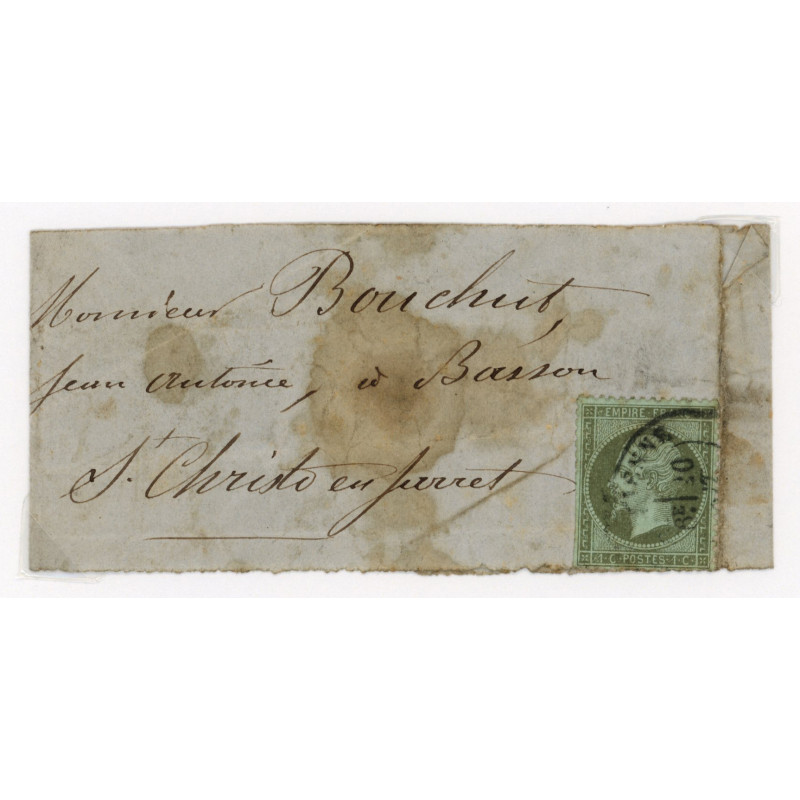 Monsieur Bouchut,
Jean Antoine, à Basson
St. Christo en Jarret
EMPIRE FR
1 C POSTES 1 C